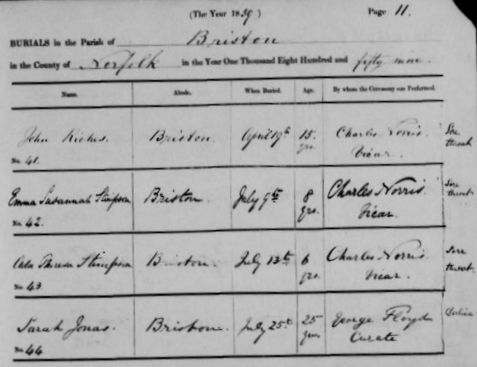 (The Year 1859) Page 11.
BURIALS in the Parish of Briston
in the County of Norfolk in the Year One Thousand Eight Hundred and fifty nine.
Name. Abode. When Buried. Age. By whom the Ceremony was Performed.
John Briston. April 19th 15 Charles Norris Sore
No. 41. yrs. Vicar. throat
Emma Susannah Stimpson Briston. July 9th 8 Charles Norris. Sore
No. 42. yrs. Vicar. throat.
Ada Theresa Stimpson Briston. July 13th 6 Charles Norris Sore
No. 43 yrs. Vicar. throat.
Sarah Jonas. Briston. July 25th 25 George Floyd
No. 44 yrs Curate